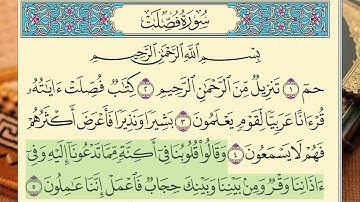 سُورَةُ فُصِّلَتْ
بِسْمِ ٱللَّهِ ٱلرَّحْمَٰنِ ٱلرَّحِيمِ
حمٓ ١ تَنزِيلٌ مِّنَ ٱلرَّحْمَٰنِ ٱلرَّحِيمِ ٢ كِتَٰبٌ فُصِّلَتْ ءَايَٰتُهُۥ
قُرْءَانًا عَرَبِيًّا لِّقَوْمٍ يَعْلَمُونَ ٣ بَشِيرًا وَنَذِيرًا فَأَعْرَضَ أَكْثَرُهُمْ
فَهُمْ لَا يَسْمَعُونَ ٤ وَقَالُوا۟ قُلُوبُنَا فِىٓ أَكِنَّةٍ مِّمَّا تَدْعُونَآ إِلَيْهِ وَفِىٓ
ءَاذَانِنَا وَقْرٌ وَمِنۢ بَيْنِنَا وَبَيْنِكَ حِجَابٌ فَٱعْمَلْ إِنَّنَا عَٰمِلُونَ ٥